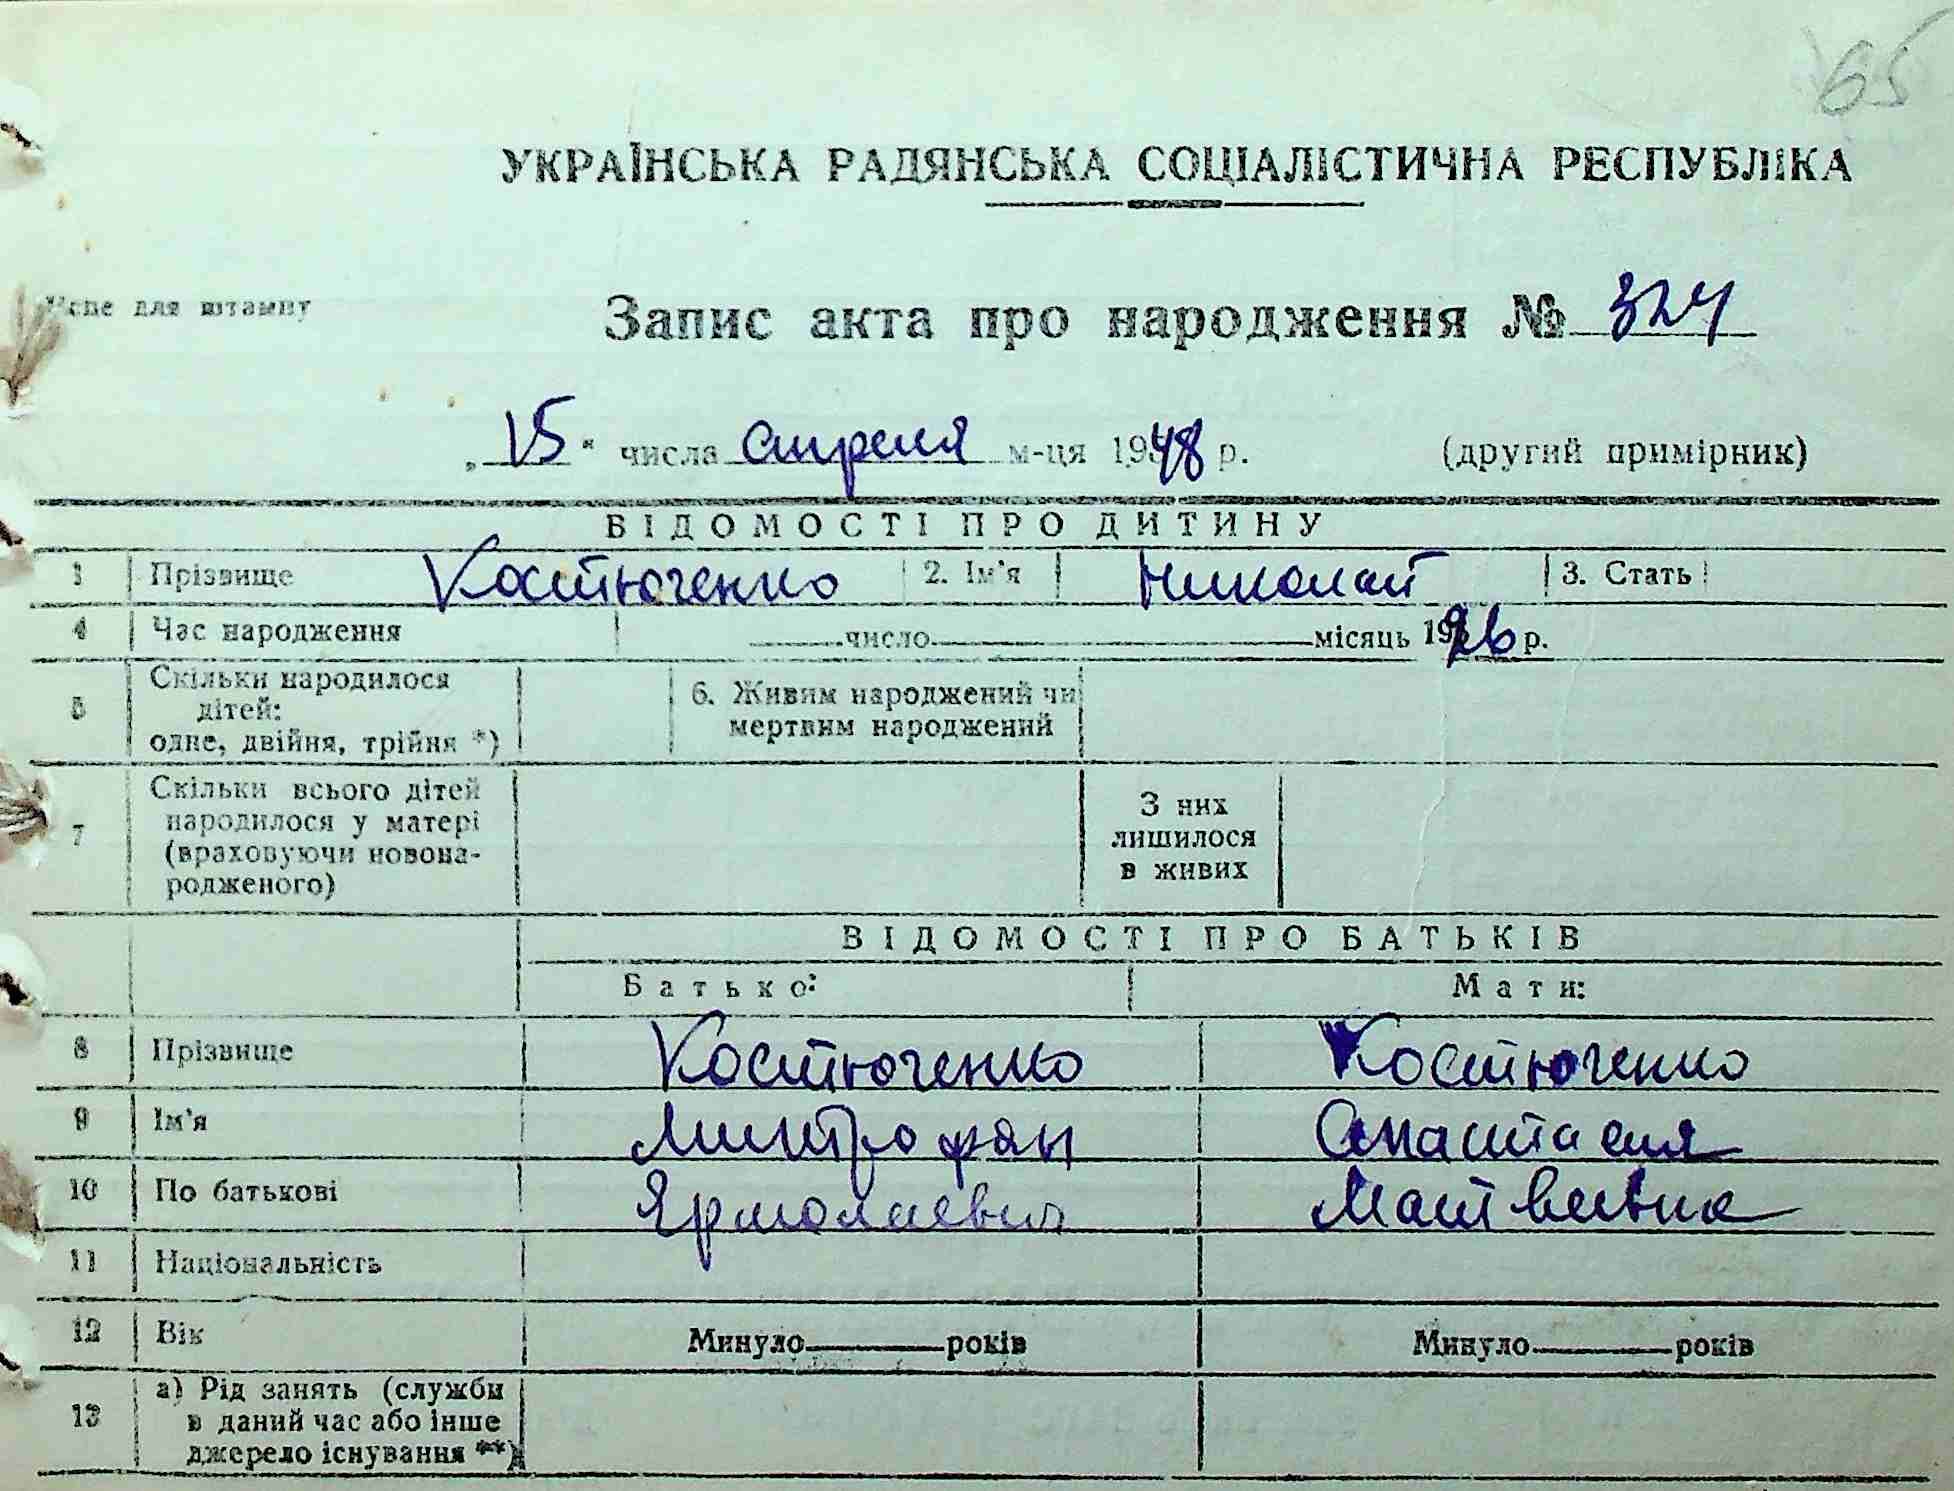 65
УКРАЇНСЬКА РАДЯНСЬКА СОЦІАЛІСТИЧНА РЕСПУБЛІКА
Місце для штампу
Запис акта про народження № 324
„15" числа апреля м-ця 1948 р. (другий примірник)
ВІДОМОСТІ ПРО ДИТИНУ
1 Прізвище Костюченко 2. Ім'я Николай 3. Стать
4 Час народження число місяць 1926 р.
5 Скільки народилося дітей: одне, двійня, трійня *) 6. Живим народжений чи мертвим народжений
7 Скільки всього дітей народилося у матері (враховуючи новона-родженого) З них лишилося в живих
ВІДОМОСТІ ПРО БАТЬКІВ
Батько: Мати:
8 Прізвище Костюченко Костюченко
9 Ім'я Митрофан Анастасия
10 По батькові Ярмолаевич Матвеевна
11 Національність
12 Вік Минуло років Минуло років
13 а) Рід занять (служби в даний час або інше джерело існування **)